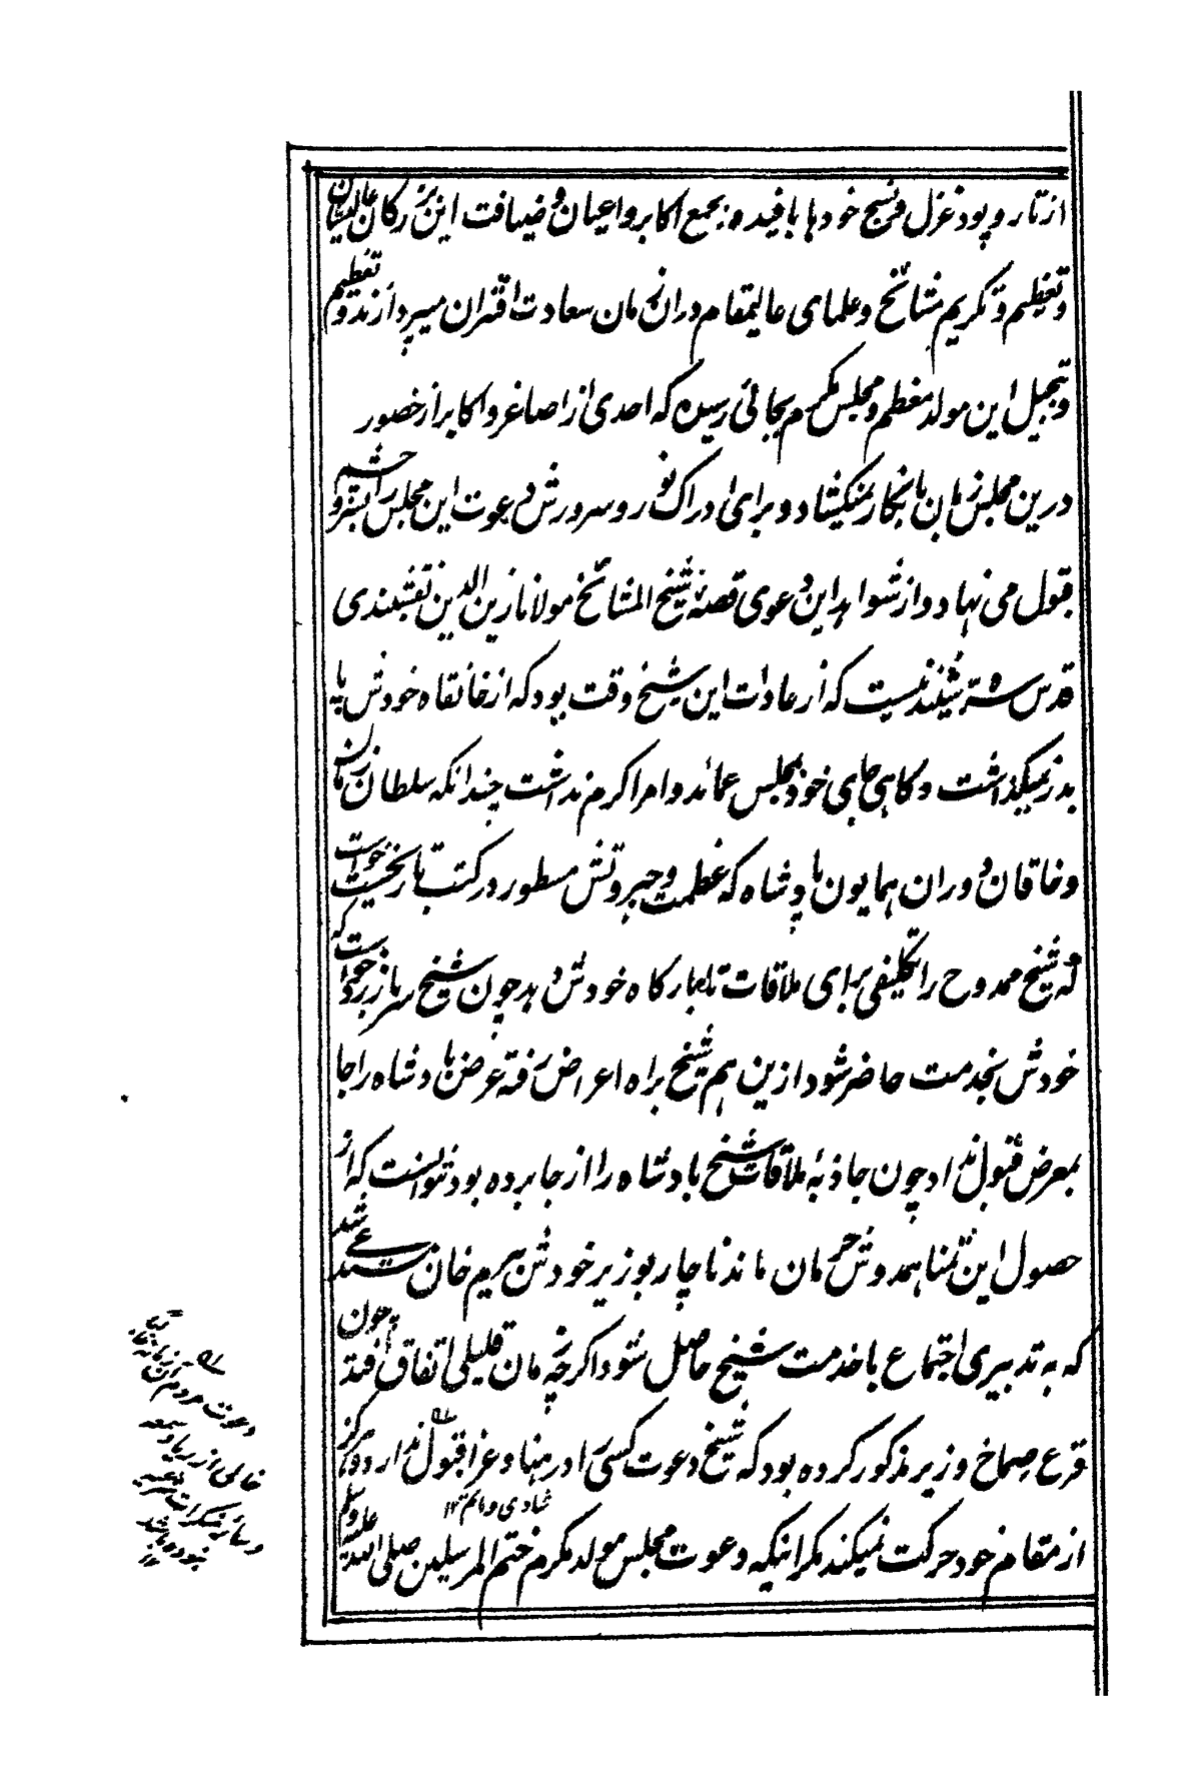 از تار و پود غزل و نسج خودها بافیده بجمع اکابر و اعیان و ضیافت این بزرگان عالیشان
و تعظیم و تکریم مشائخ و علمای عالیمقام در ان زمان سعادت اقتران میپردازند و تعظیم
و تبجیل این مولد معظم و مجلس مکرم بجائی رسیده که احدی از اصاغر و اکابر از حضور
درین مجلس زبان بانکار نمیکشاد و برای ادراک نور و سرورش دعوت این مجلس را بسر و چشم
قبول می نهاد و از شواهد این دعوی قصهٔ شیخ المشائخ مولانا زین الدین نقشبندی
قدس سره شنیدنیست که از عادات این شیخ وقت بود که از خانقاه خودش پا
بدر نمیگذاشت و کاهی جای خود بمجلس عمائد و امرا کرم نداشت چندانکه سلطان زمان
و خاقان دوران همایون پادشاه که عظمت و جبروتش مسطور در کتب تاریخست خواست
که شیخ ممدوح را تکلیفی برای ملاقات تا ببارکاه خودش دهد چون شیخ سر باز زد خواست که
خودش بخدمت حاضر شود ازین هم شیخ براه اعراض رفته عرض پادشاه را جا
بمعرض قبول نداد چون جاذبهٔ ملاقات شیخ پادشاه را از جا برده بود نتوانست که از
حصول این تمنا همدوش حرمان ماند ناچار بوزیر خودش بیرم خان مستدعی شد
که به تدبیری اجتماع با خدمت شیخ حاصل شود اکرچه زمان قلیلی اتفاق افتد چون
قرع صماخ وزیر مذکور کرده بود که شیخ دعوت کسی را در هنا و عزا قبول ندارد و هرکز
شادی و ماتم ۱۲
از مقام خود حرکت نمیکند مکر اینکه دعوت مجلس مولد مکرم ختم المرسلین صلی الله علیه وسلم
دعوت مردم
خالی از ریا و سمعه
و سائر منکرات شرعیه
نبوده باشد
۱۲